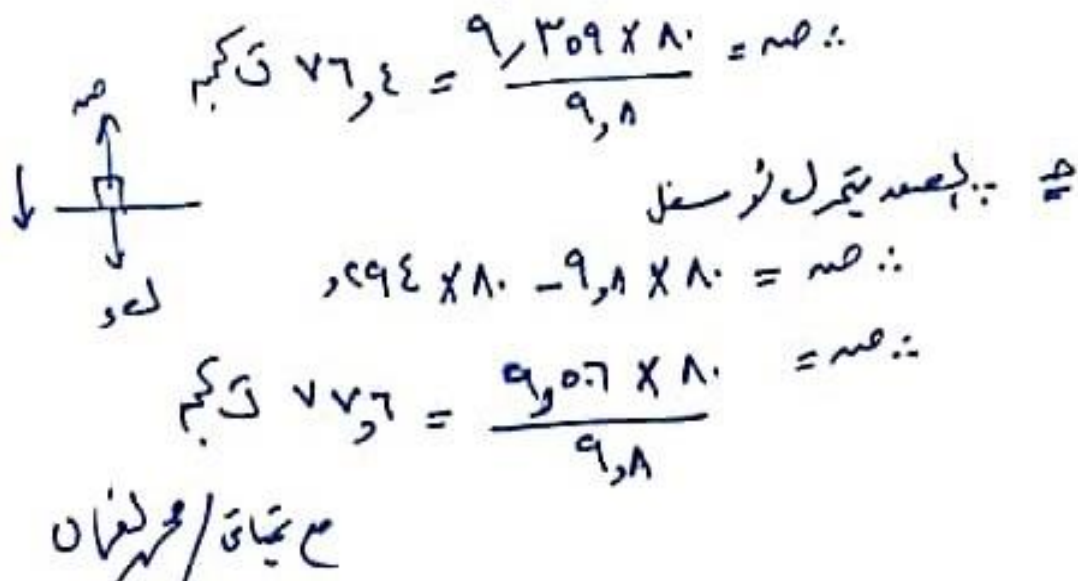 ∴ ص = ٨٠ × ٩,٣٥٩ / ٩,٨ = ٧٦,٤ ث كجم
ص
ك د
ج ∵ المصعد يتحرك لأسفل
∴ ص = ٨٠ × ٩,٨ - ٨٠ × ٢٩٤,
∴ ص = ٨٠ × ٩,٥٠٦ / ٩,٨ = ٧٧,٦ ث كجم
مع تحياتى / محمد لقمان